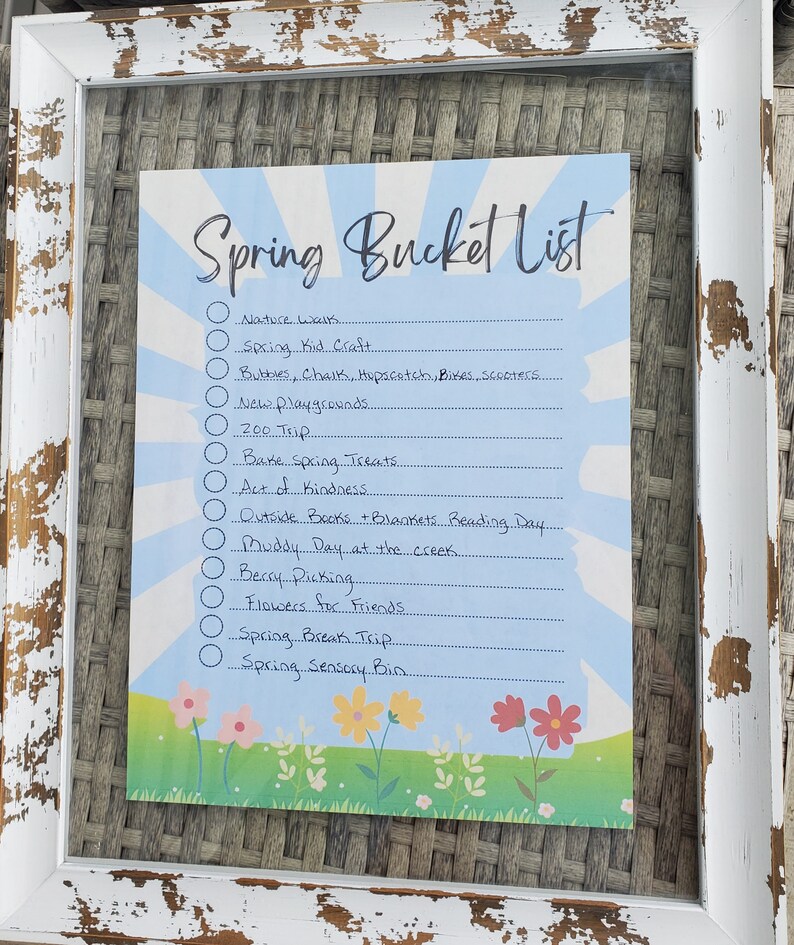 Spring Bucket List
Nature Walk
Spring Kid Craft
Bubbles, Chalk, Hopscotch, Bikes, scooters
New playgrounds
Zoo Trip
Bake Spring Treats
Act of Kindness
Outside Books + Blankets Reading Day
Muddy Day at the creek
Berry Picking
Flowers for Friends
Spring Break Trip
Spring Sensory Bin